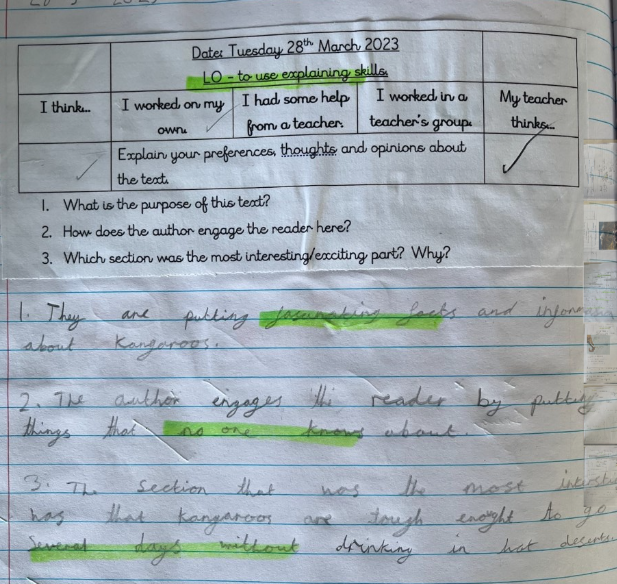 Date: Tuesday 28th March 2023
LO - to use explaining skills.
I think... I worked on my own. I had some help from a teacher. I worked in a teacher's group. My teacher thinks...
Explain your preferences, thoughts and opinions about
the text.
1. What is the purpose of this text?
2. How does the author engage the reader here?
3. Which section was the most interesting/exciting part? Why?
1. They are putting fasunating facts and
about Kangaroos.
2. The author engages the reader by putting
things that no one knows about.
3. The section that was the most
was that kangaroos are tough enought to go
several days without drinking in hot